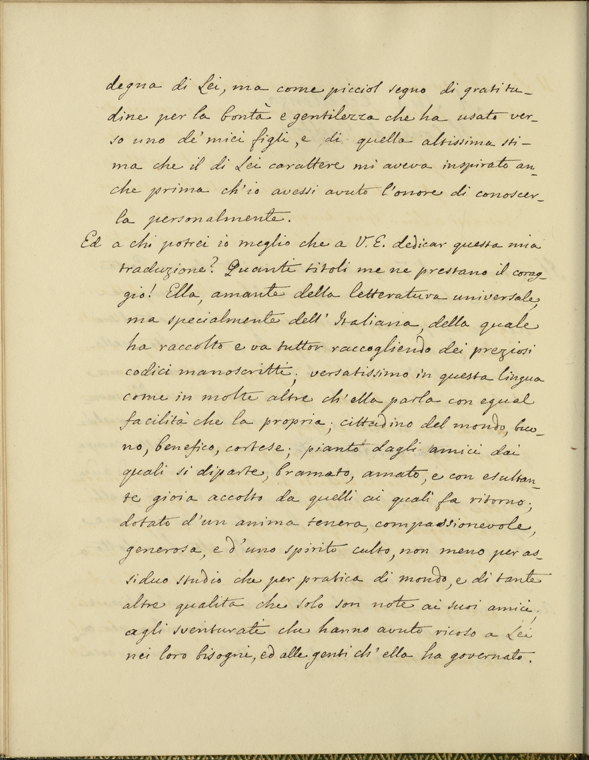 degna di Lei, ma come picciol segno di gratitu-
dine per la bontà e gentilezza che ha usato ver-
so uno de' miei figli, e di quella altissima sti-
ma che il di Lei carattere mi aveva inspirato an-
che prima ch'io avessi avuto l'onore di conoscer-
la personalmente.
Ed a chi potrei io meglio che a V. E. dedicar questa mia
traduzione? Quanti titoli me ne prestano il corag-
gio! Ella, amante della letteratura universale,
ma specialmente dell' Italiana, della quale
ha raccolto e va tuttor raccogliendo dei preziosi
codici manoscritti; versatissimo in questa lingua
come in molte altre ch'ella parla con egual
facilità che la propria; cittadino del mondo, buo-
no, benefico, cortese; pianto dagli amici dai
quali si diparte, bramato, amato, e con esultan-
te gioia accolto da quelli ai quali fa ritorno;
dotato d'un anima tenera, compassionevole,
generosa, e d'uno spirito culto, non meno per as-
siduo studio che per pratica di mondo, e di tante
altre qualita che solo son note ai suoi amici,
agli sventurati che hanno avuto ricorso a Lei
nei loro bisogni, ed alle genti ch' ella ha governato.